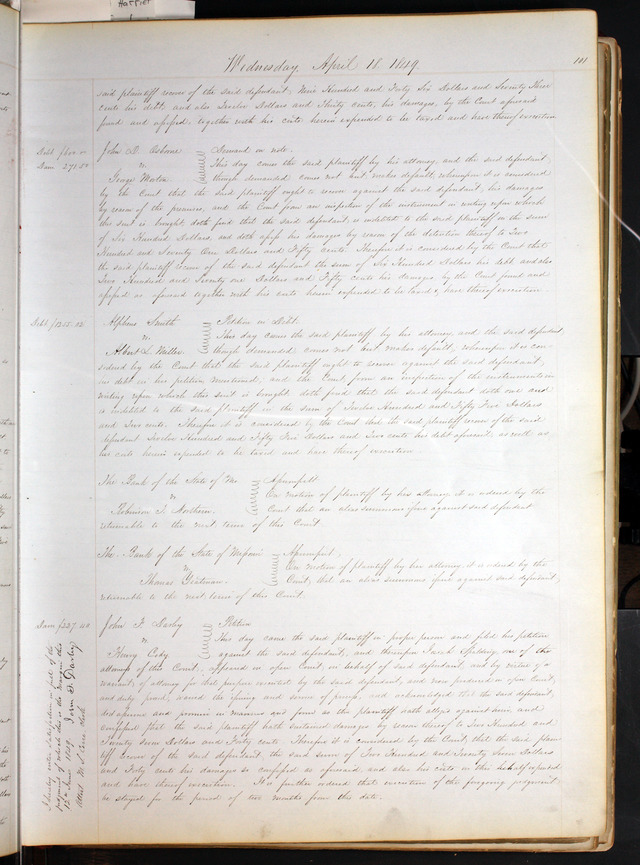 Harriet
Wednesday April 18 1849
101
said plaintiff recover of the said defendant, Nine Hundred and Forty Six Dollars and Seventy Three
cents his debt, and also Twelve Dollars and Thirty cents, his damages, by the Court aforesaid
found and assessed together with his costs herein expended to be taxed and have thereof execution
Debt $600 —
Dam 271.50
John D. Osborne
vs
George Morton
Demand on note.
This day came the said plaintiff by his attorney, and the said defendant,
though demanded comes not but makes default, whereupon it is considered
by the Court that the said plaintiff ought to recover against the said defendant, his damages
by reason of the premises, and the Court from an inspection of the instrument in writing upon which
this suit is brought, doth find that the said defendant, is indebted to the said plaintiff in the sum
of Six Hundred Dollars, and doth assess his damages by reason of the detention thereof to Two
Hundred and Seventy One Dollars and Fifty cents. Therefore it is considered by the Court that
the said plaintiff recover of the said defendant the sum of Six Hundred Dollars his debt and also
Two Hundred and Seventy one Dollars and Fifty cents his damages by the Court found and
assessed as aforesaid together with his costs herein expended to be taxed & have thereof execution
Debt $1255.02
Alpheus Smith
vs
Albert L. Miller
Petition in Debt.
This day came the said plaintiff by his attorney, and the said defendant,
though demanded comes not but makes default, whereupon it is con-
sidered by the Court that the said plaintiff ought to recover against the said defendant,
his debt in his petition mentioned, and the Court from an inspection of the instrument in
writing upon which this suit is brought doth find that the said defendant doth owe and
is indebted to the said plaintiff in the sum of Twelve Hundred and Fifty Five Dollars
and Two cents. Therefore it is considered by the Court that the said plaintiff recover of the said
defendant Twelve Hundred and Fifty Five Dollars and Two cents his debt aforesaid, as well as
his costs herein expended to be taxed and have thereof execution
The Bank of the State of Mo
vs
Robinson T. Northern
Assumpsit
On motion of plaintiff by his attorney it is ordered by the
Court that an alias summons issue against said defendant
returnable to the next term of this Court
The Bank of the State of Missouri
vs
Thomas Gratman
Assumpsit,
On motion of plaintiff by his attorney it is ordered by the
Court, that an alias summons issue against said defendant
returnable to the next term of this Court.
Dam $227.40
John F. Darby
vs
Henry Cody
Petition
This day came the said plaintiff in proper person and filed his petition
against the said defendant, and thereupon Josiah Spalding one of the
attorneys of this Court, appeared in open Court in behalf of said defendant and by virtue of a
warrant of attorney for that purpose executed by the said defendant, and now produced in open Court,
and duly proved, waived the issuing and service of process, and acknowledged that the said defendant,
did assume and promise in manner and form as the plaintiff hath alleged against him, and
confessed that the said plaintiff hath sustained damages by reason thereof to Two Hundred and
Twenty Seven Dollars and Forty cents. Therefore it is considered by the Court, that the said plain
tiff recover of the said defendant the said sum of Two Hundred and Twenty Seven Dollars
and Forty cents his damages so confessed as aforesaid and also his costs in this behalf expended
and have thereof execution. It is further ordered that execution of the foregoing judgment
be stayed for the period of two months from this date.
I hereby enter Satisfaction in full of the
judgment of which this is the margin this
12th June 1849 John F. Darby
Attest